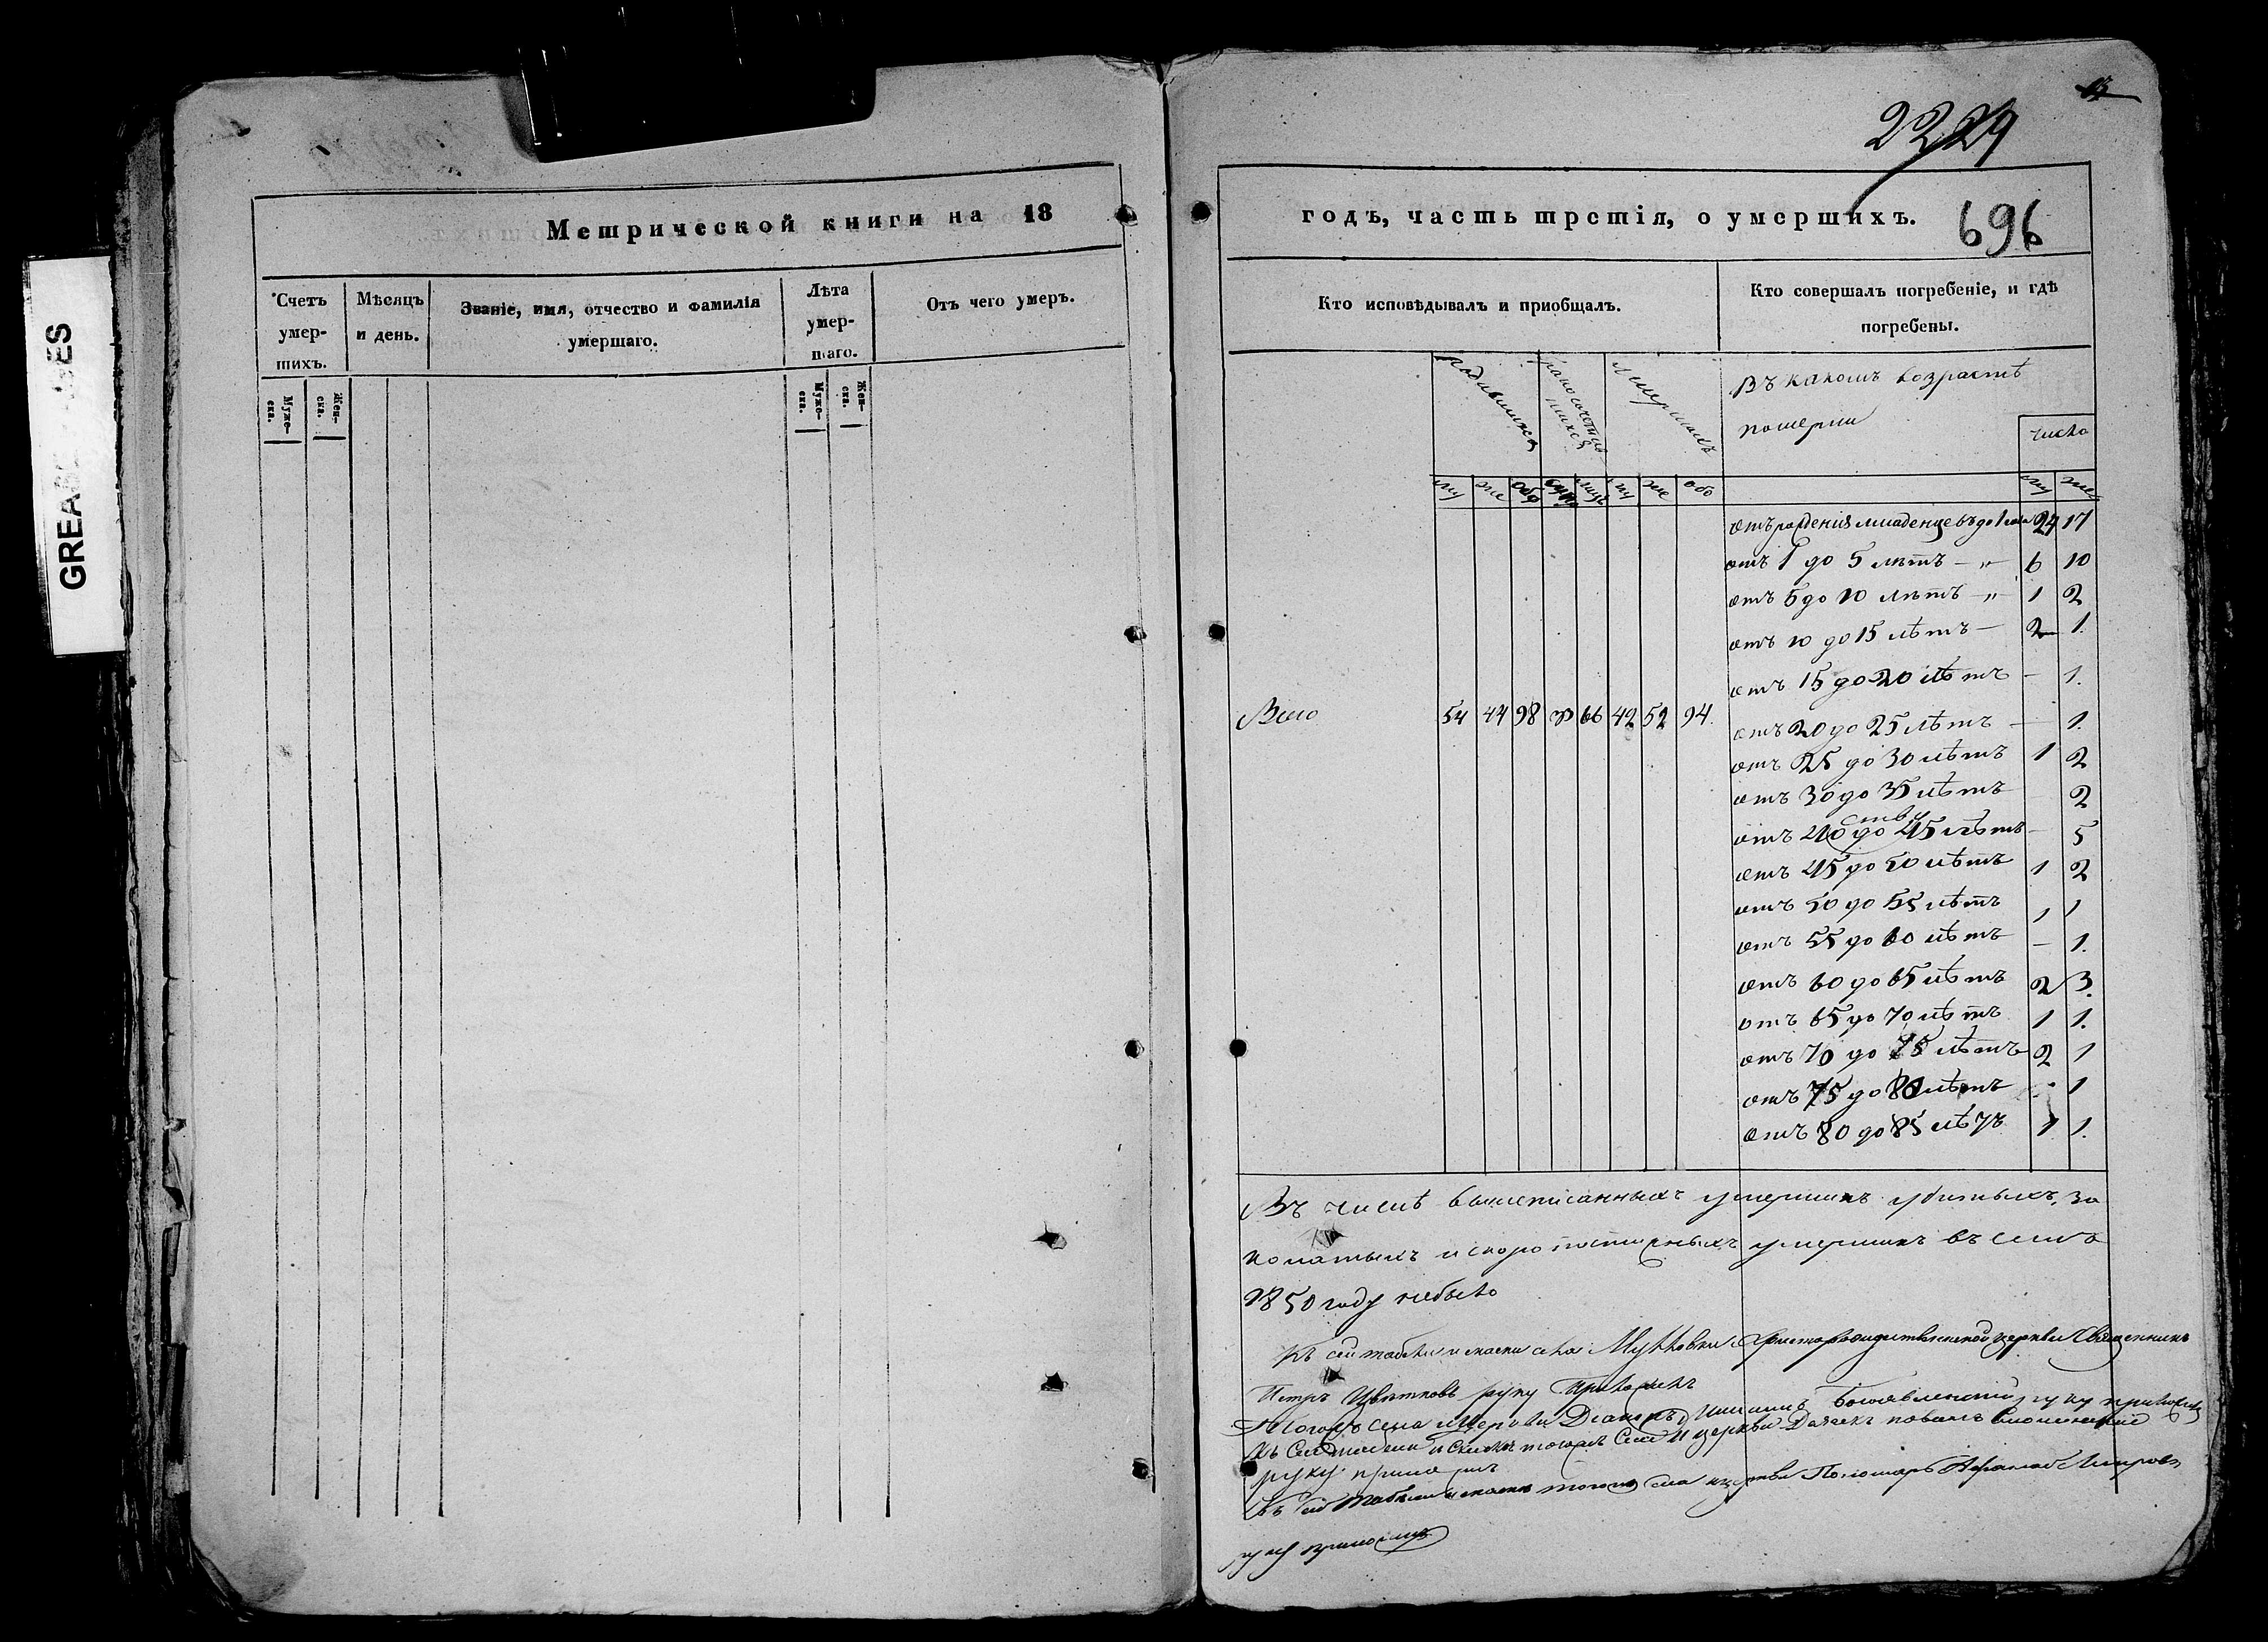 GREA
ES
Метрической книги на 18
Счетъ умер-шихъ.
Мѣсяцъ и день.
Званіе, имя, отчество и фамилія умершаго.
Лѣта умер-шаго.
Отъ чего умеръ.
Муже-ска.
Жен-ска.
Муже-ска.
Жен-ска.
2324
696
годъ, часть третія, о умершихъ.
Кто исповѣдывалъ и приобщалъ.
Кто совершалъ погребеніе, и гдѣ погребены.
Родившихся
Умершихъ
Въ какомъ возрастѣ
померли
число
му же обо му же обо
му же
отъ рожденія младенцевъ до 1 27 17
отъ 1 до 5 лѣтъ — „ — 6 10
отъ 5 до 10 лѣтъ — „ — 1 2
отъ 10 до 15 лѣтъ — 2 1.
отъ 15 до 20 лѣтъ — 1.
Всего 54 44 98 33 66 42 52 94.
отъ 20 до 25 лѣтъ — 1.
отъ 25 до 30 лѣтъ 1 2
отъ 30 до 35 лѣтъ 2
отъ 40 до 45 лѣтъ — 5
отъ 45 до 50 лѣтъ 1 2
отъ 50 до 55 лѣтъ 1 1
отъ 55 до 60 лѣтъ — 1.
отъ 60 до 65 лѣтъ 2 3.
отъ 65 до 70 лѣтъ 1 1.
отъ 70 до 75 лѣтъ 2 1
отъ 75 до 80 лѣтъ 1
отъ 80 до 85 лѣтъ 1 1.
Въ числѣ вышеписанныхъ умершихъ убитыхъ, за
колотыхъ и скоропостижныхъ умершихъ въ семъ
1850 году небыло
Къ сей табели и села церкви Священникъ
Петръ Цвѣтковъ руку приложилъ
села церкви Діаконъ Богоявленскій руку приложилъ
Къ сей табели тогожъ села и церкви Дьячекъ
руку приложилъ
Къ сей табели тогожъ села и церкви Пономарь
руку приложилъ